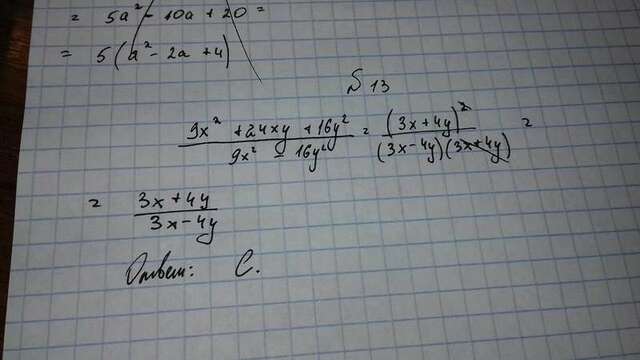 = 5a² - 10a + 20 =
= 5(a² - 2a + 4)
№ 13
(9x² + 24xy + 16y²)/(9x² - 16y²) = (3x + 4y)²/((3x - 4y)(3x + 4y)) =
= (3x + 4y)/(3x - 4y)
Ответ: C.